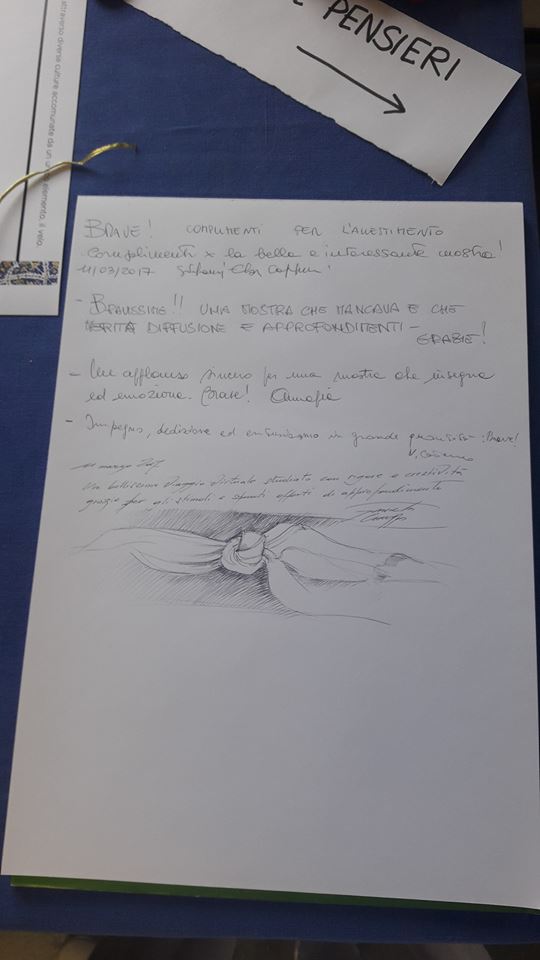 PENSIERI
attraverso diverse culture accomunate da un unico elemento, il velo.
BRAVE! COMPLIMENTI PER L'ALLESTIMENTO
Complimenti x la bella e interessante mostra!
11/03/2017
- BRAVISSIME!! UNA MOSTRA CHE MANCAVA E CHE
MERITA DIFFUSIONE E APPROFONDIMENTI -
GRAZIE!
- Un applauso sincero per una mostra che insegna
ed emoziona. Brave!
- Impegno, dedizione ed entusiasmo in grande quantità: Brave!
11 marzo 2017
Un bellissimo viaggio virtuale studiato con rigore e creatività
grazie per gli stimoli e spunti offerti di approfondimento